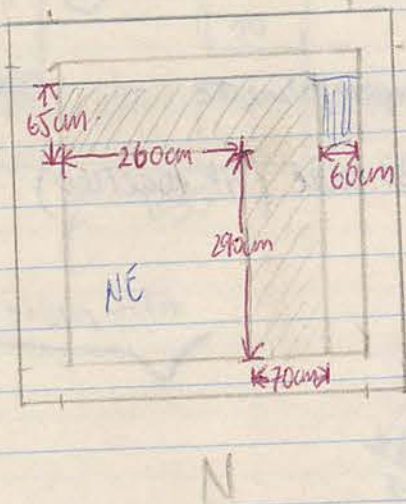 65cm
260cm
60cm
290cm
NE
70cm
N